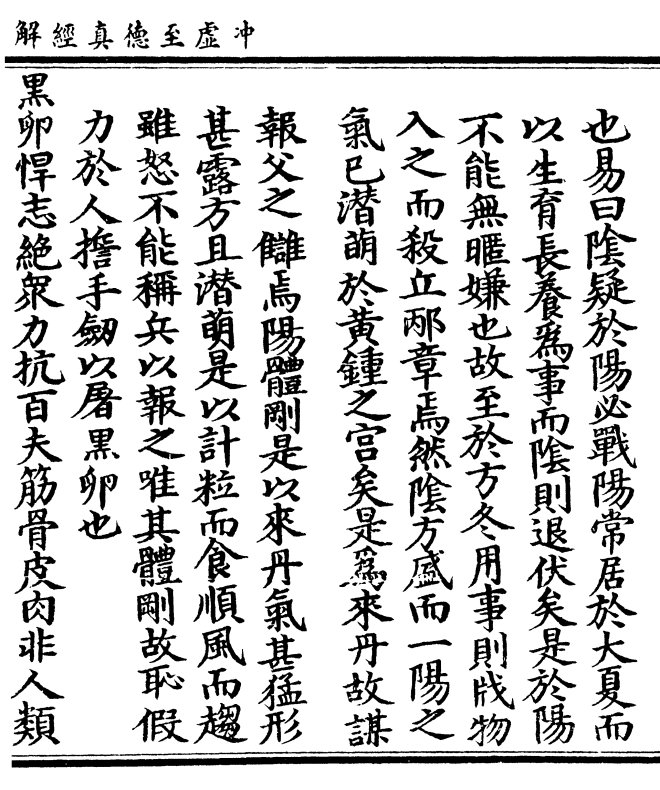 冲虛至德真經解
也易曰陰疑於陽必戰陽常居於大夏而
以生育長養爲事而陰則退伏矣是於陽
不能無暱嫌也故至於方冬用事則戕物
入之而殺丘邴章焉然陰方盛而一陽之
氣已潛萌於黃鍾之宮矣是爲來丹故謀
報父之讎焉陽體剛是以來丹氣甚猛形
甚露方且潛萌是以計粒而食順風而趨
雖怒不能稱兵以報之唯其體剛故恥假
力於人擔手劒以屠黑卵也
黑卵悍志絕衆力抗百夫筋骨皮肉非人類